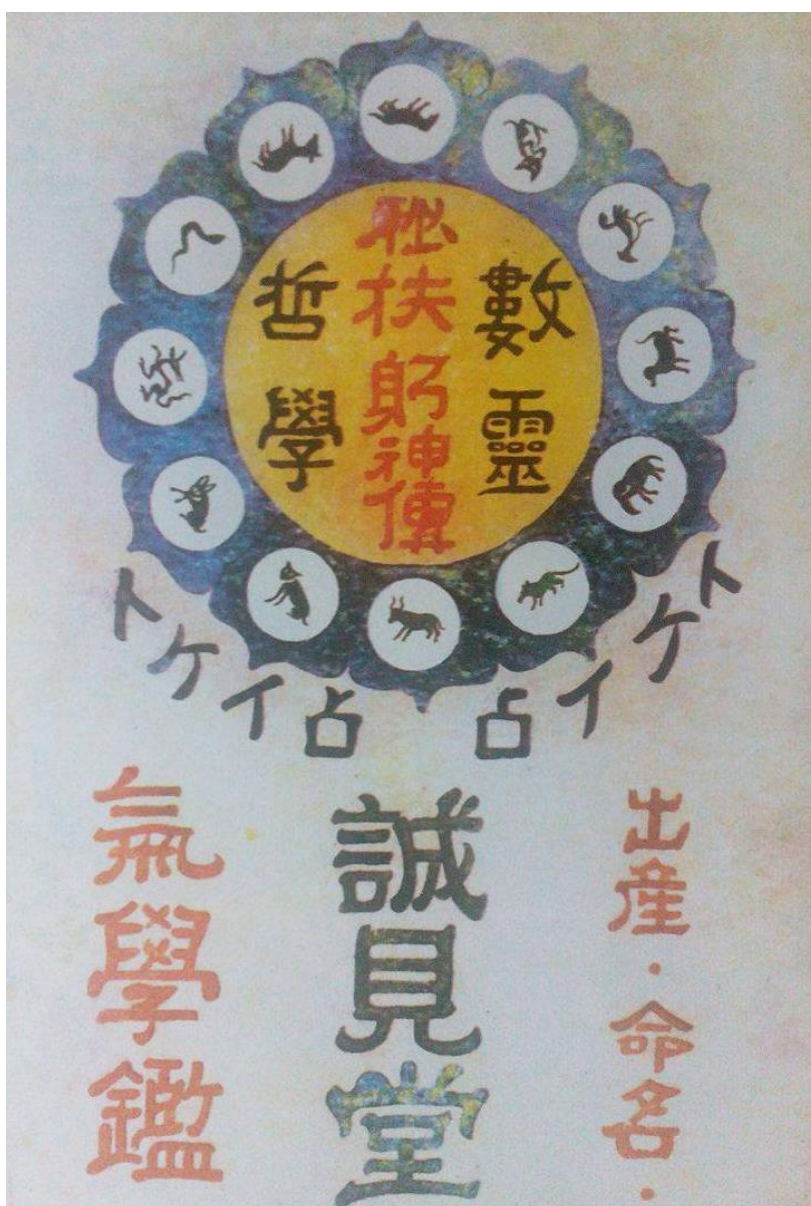 數靈
秘扶躬神傳
哲學
トケイ占
トケイ占
出産・命名・
誠見堂
氣學鑑